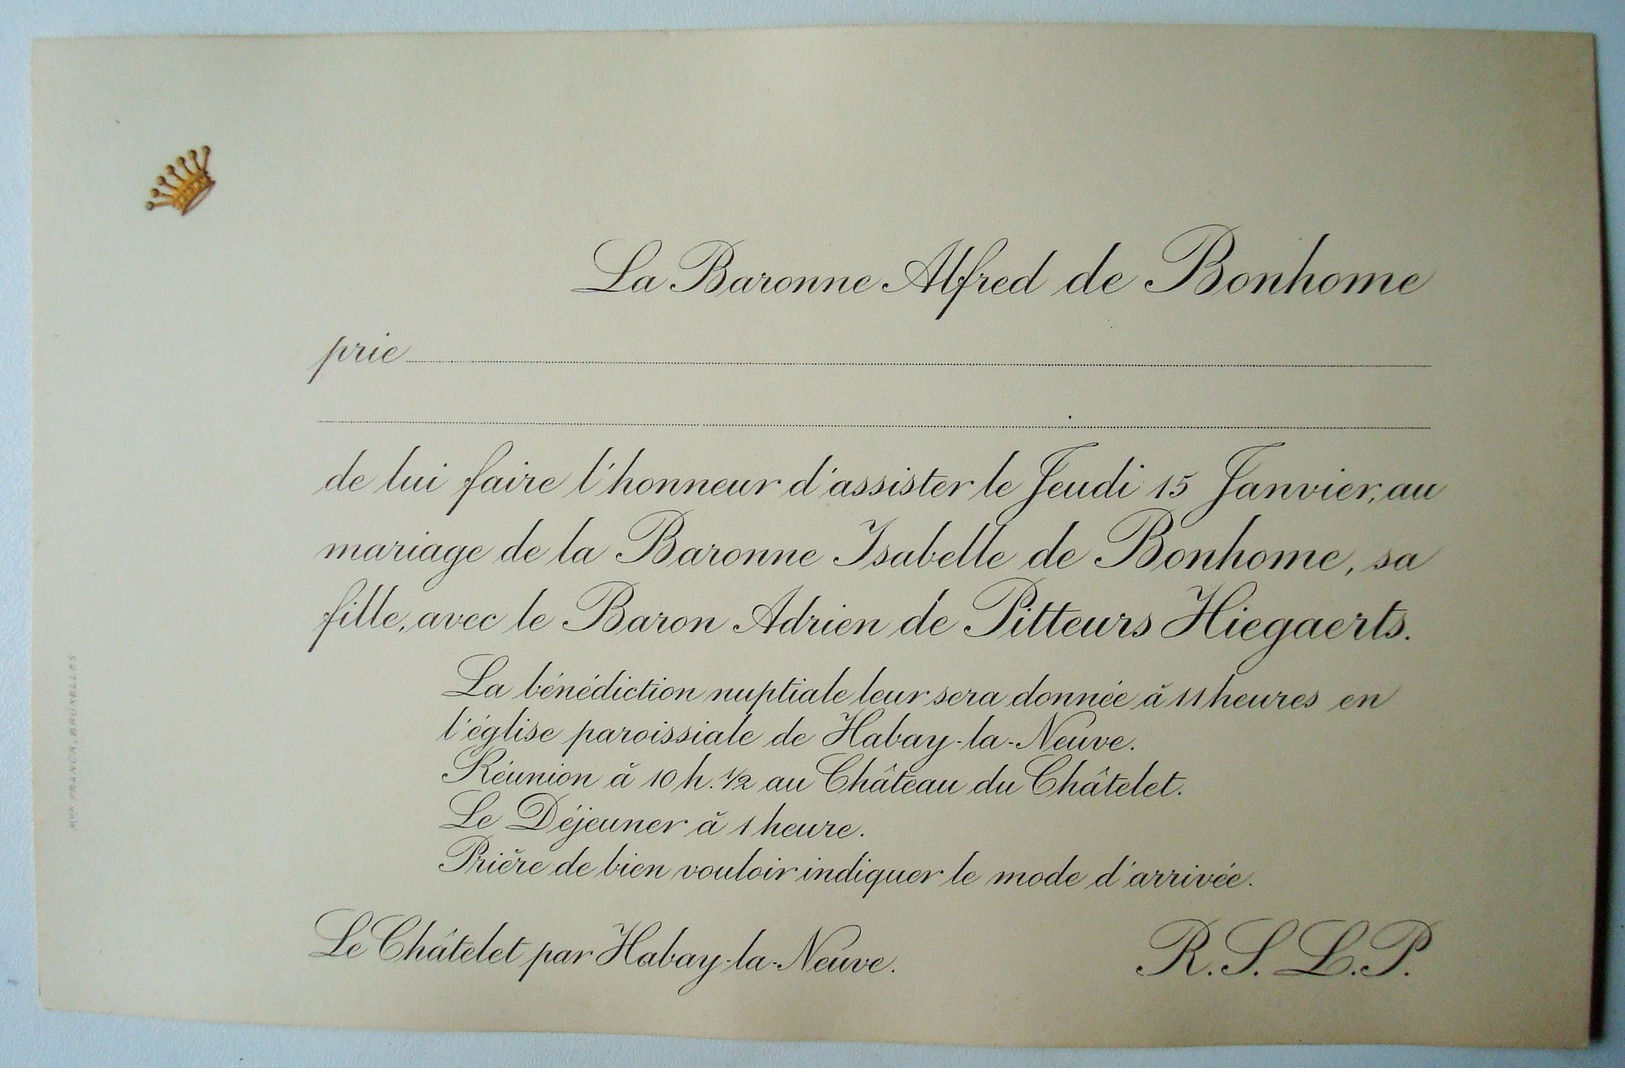 La Baronne Alfred de Bonhome
prie
de lui faire l'honneur d'assister le Jeudi 15 Janvier, au
mariage de la Baronne Isabelle de Bonhome, sa
fille, avec le Baron Adrien de Pitteurs Hiegaerts.
La bénédiction nuptiale leur sera donnée à 11 heures en
l'église paroissiale de Habay-la-Neuve.
Réunion à 10 h. ½ au Château du Châtelet.
Le Déjeuner à 1 heure.
Prière de bien vouloir indiquer le mode d'arrivée.
Le Châtelet par Habay-la-Neuve.
R.S.L.P.
BRUXELLES